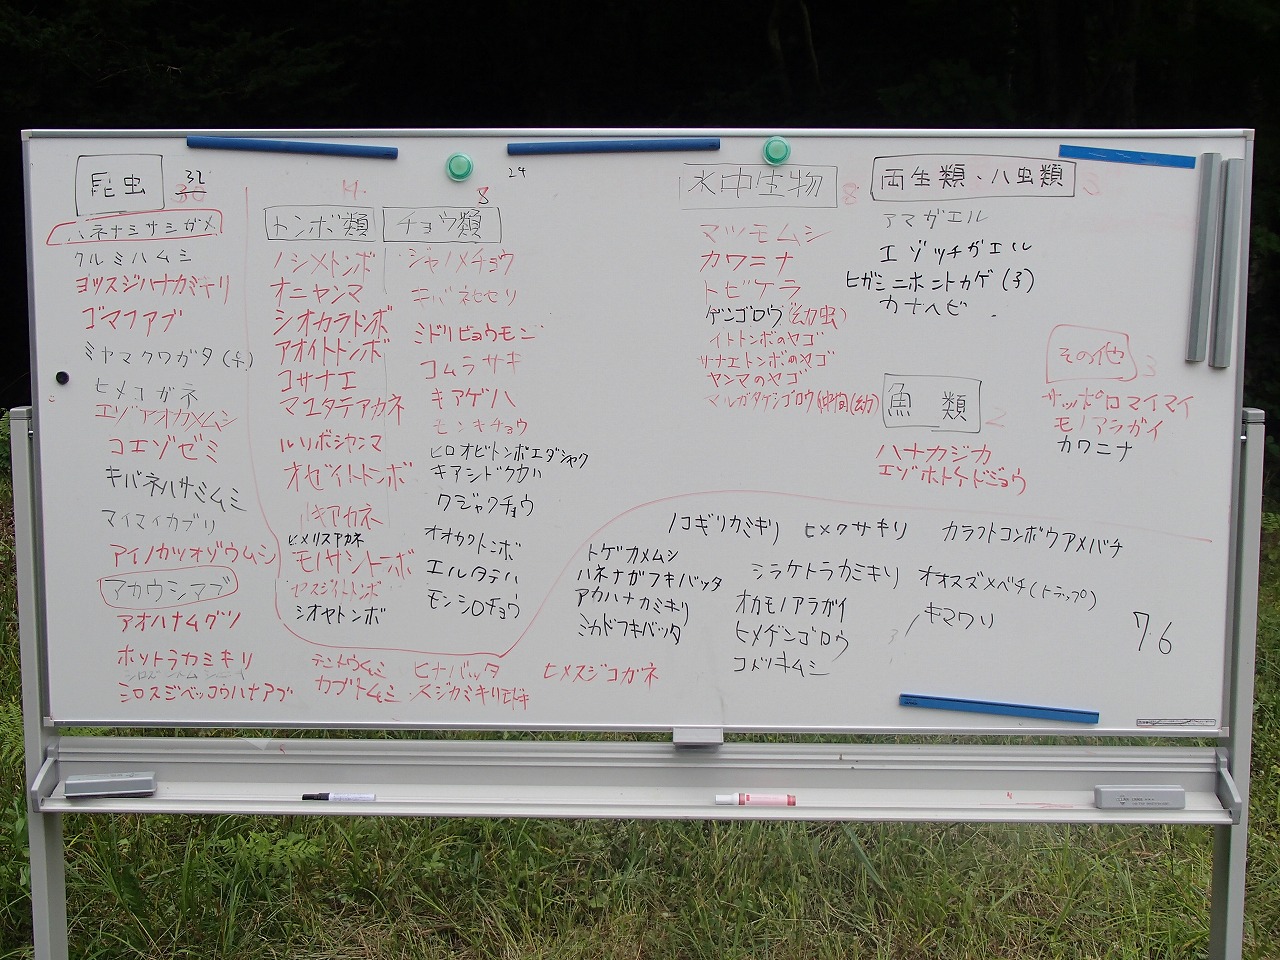 昆虫 32
30
ハネナシサシガメ
クルミハムシ
ヨツスジハナカミキリ
ゴマフアブ
ミヤマクワガタ(♀)
ヒメコガネ
エゾアオカメムシ
コエゾゼミ
キバネハサミムシ
マイマイカブリ
アイノカツオゾウムシ
アカウシアブ
アオハナムグリ
ホソトラカミキリ
シロスジベッコウハナアブ
テントウムシ
カブトムシ
ヒナバッタ
スジカミキリモドキ
ヒメスジコガネ
14
トンボ類
ノシメトンボ
オニヤンマ
シオカラトンボ
アオイトトンボ
コサナエ
マユタテアカネ
ルリボシヤンマ
オゼイトトンボ
キアカネ
ヒメリスアカネ
モノサシトンボ
セスジイトトンボ
シオヤトンボ
8
24
チョウ類
ジャノメチョウ
キバネセセリ
ミドリヒョウモン
コムラサキ
キアゲハ
モンキチョウ
ヒロオビトンボエダシャク
キアシドクガ
クジャクチョウ
オオカクトンボ
エルタテハ
モンシロチョウ
水中生物 8
マツモムシ
カワニナ
トビケラ
ゲンゴロウ(幼虫)
イトトンボのヤゴ
サナエトンボのヤゴ
ヤンマのヤゴ
マルガタゲンゴロウ仲間(幼)
両生類・ハ虫類 3
アマガエル
エゾッチガエル
ヒガシニホントカゲ(子)
カナヘビ
魚類 2
ハナカジカ
エゾホトケドジョウ
その他 3
サッポロマイマイ
モノアラガイ
カワニナ
ノコギリカミキリ
ヒメクサキリ
カラフトコンボウアメバチ
トゲカメムシ
ハネナガフキバッタ
アカハナカミキリ
ミカドフキバッタ
シラケトラカミキリ
オカモノアラガイ
ヒメゲンゴロウ
コメツキムシ
オオスズメバチ(トラップ)
キマワリ
76